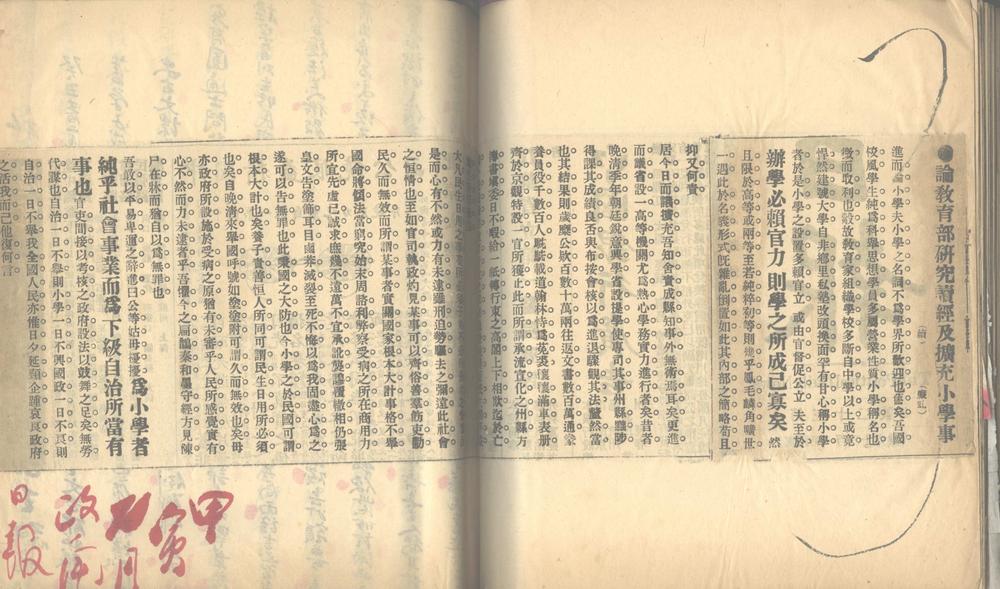 ●論教育部研究讀經及擴充小學事
(續)
進而論小學夫小學之名詞不爲學界所歡迎也舊矣吾國
校風學生純爲科舉思想學員多屬營業性質小學稱名也
微而取利也設放敎育家組織學校多斷自中學以上或竟
悍然建號大學自非鄉里私塾改頭換面罕有甘心稱小學
者於是小學之設置多續官立或由官督促公立夫至於
辦學必賴官力則學之所成已寡矣然
且限於高等或兩等至若純粹初等則幾乎鳳毛麟角曠世
一遇此於名義形式旣雜亂倒置如此其內部之簡略苟且
抑又何責
居今日而議擴充吾知舍責成縣知事外無術焉耳矣更進
而議省設一高等機關尤爲熱心學務實力進行者矣昔者
晚淸季年朝廷銳意興學省設提學使專司其事州縣黜陟
得課其成績良否與布按會核以爲進退驟觀其法釐然當
也其結果則歲糜公欵百數十萬兩往返文書數百萬通豢
養員役千數百人駐驗載道翰林恃爲英裘瓖瓖滿車表册
齊於京觀特設一官所獲止此而所謂承流宣化之州縣方
簿書填委日不暇給一紙轉行束之高閣上下相欺迄於亡
是而心有不然或力有未逮雖刑迫勞驅去之彌遠此社會
之恒情也至如官司執政灼見某事可以齊俗善羣飭吏勸
民久而無效而所謂某事者實關國家根本大計事格不舉
國命將傾法當窮究始末周諮利弊察受病之所在商用力
所宜先虛己誠求庶幾不遠萬不宜承訛襲謬覆轍相仍張
皇文告塗飾耳目鹵莽滅裂至死不悔以爲我固盡心爲之
遂可以吿無罪也此秉國之大防也今小學之於民國可謂
根本大計也矣養子責善恒人所同可謂民生日用所必須
也矣自晚淸來舉國呼號如塗塗附可謂久而無效也矣毋
亦政府所設施於受病之原猶有未審乎人民所感覺實有
心不然而力未逮者乎吾懼今之扁髓秦和墨守經方見陳
尸在牀而猶自以爲無罪也
吾敢以平易卑邇之辭進曰公等姑毋擾擾爲小學者
純乎社會事業而爲下級自治所當有
事也官吏間接以考核之政府設法以鼓舞之足矣無勞
代謀也自治一日不舉則小學一日不興國政一日不良則
自治一日不舉我全國人民亦惟日夕延頸企踵哀良政府
之活我而已他復何言
甲寅
九月
政府
日報